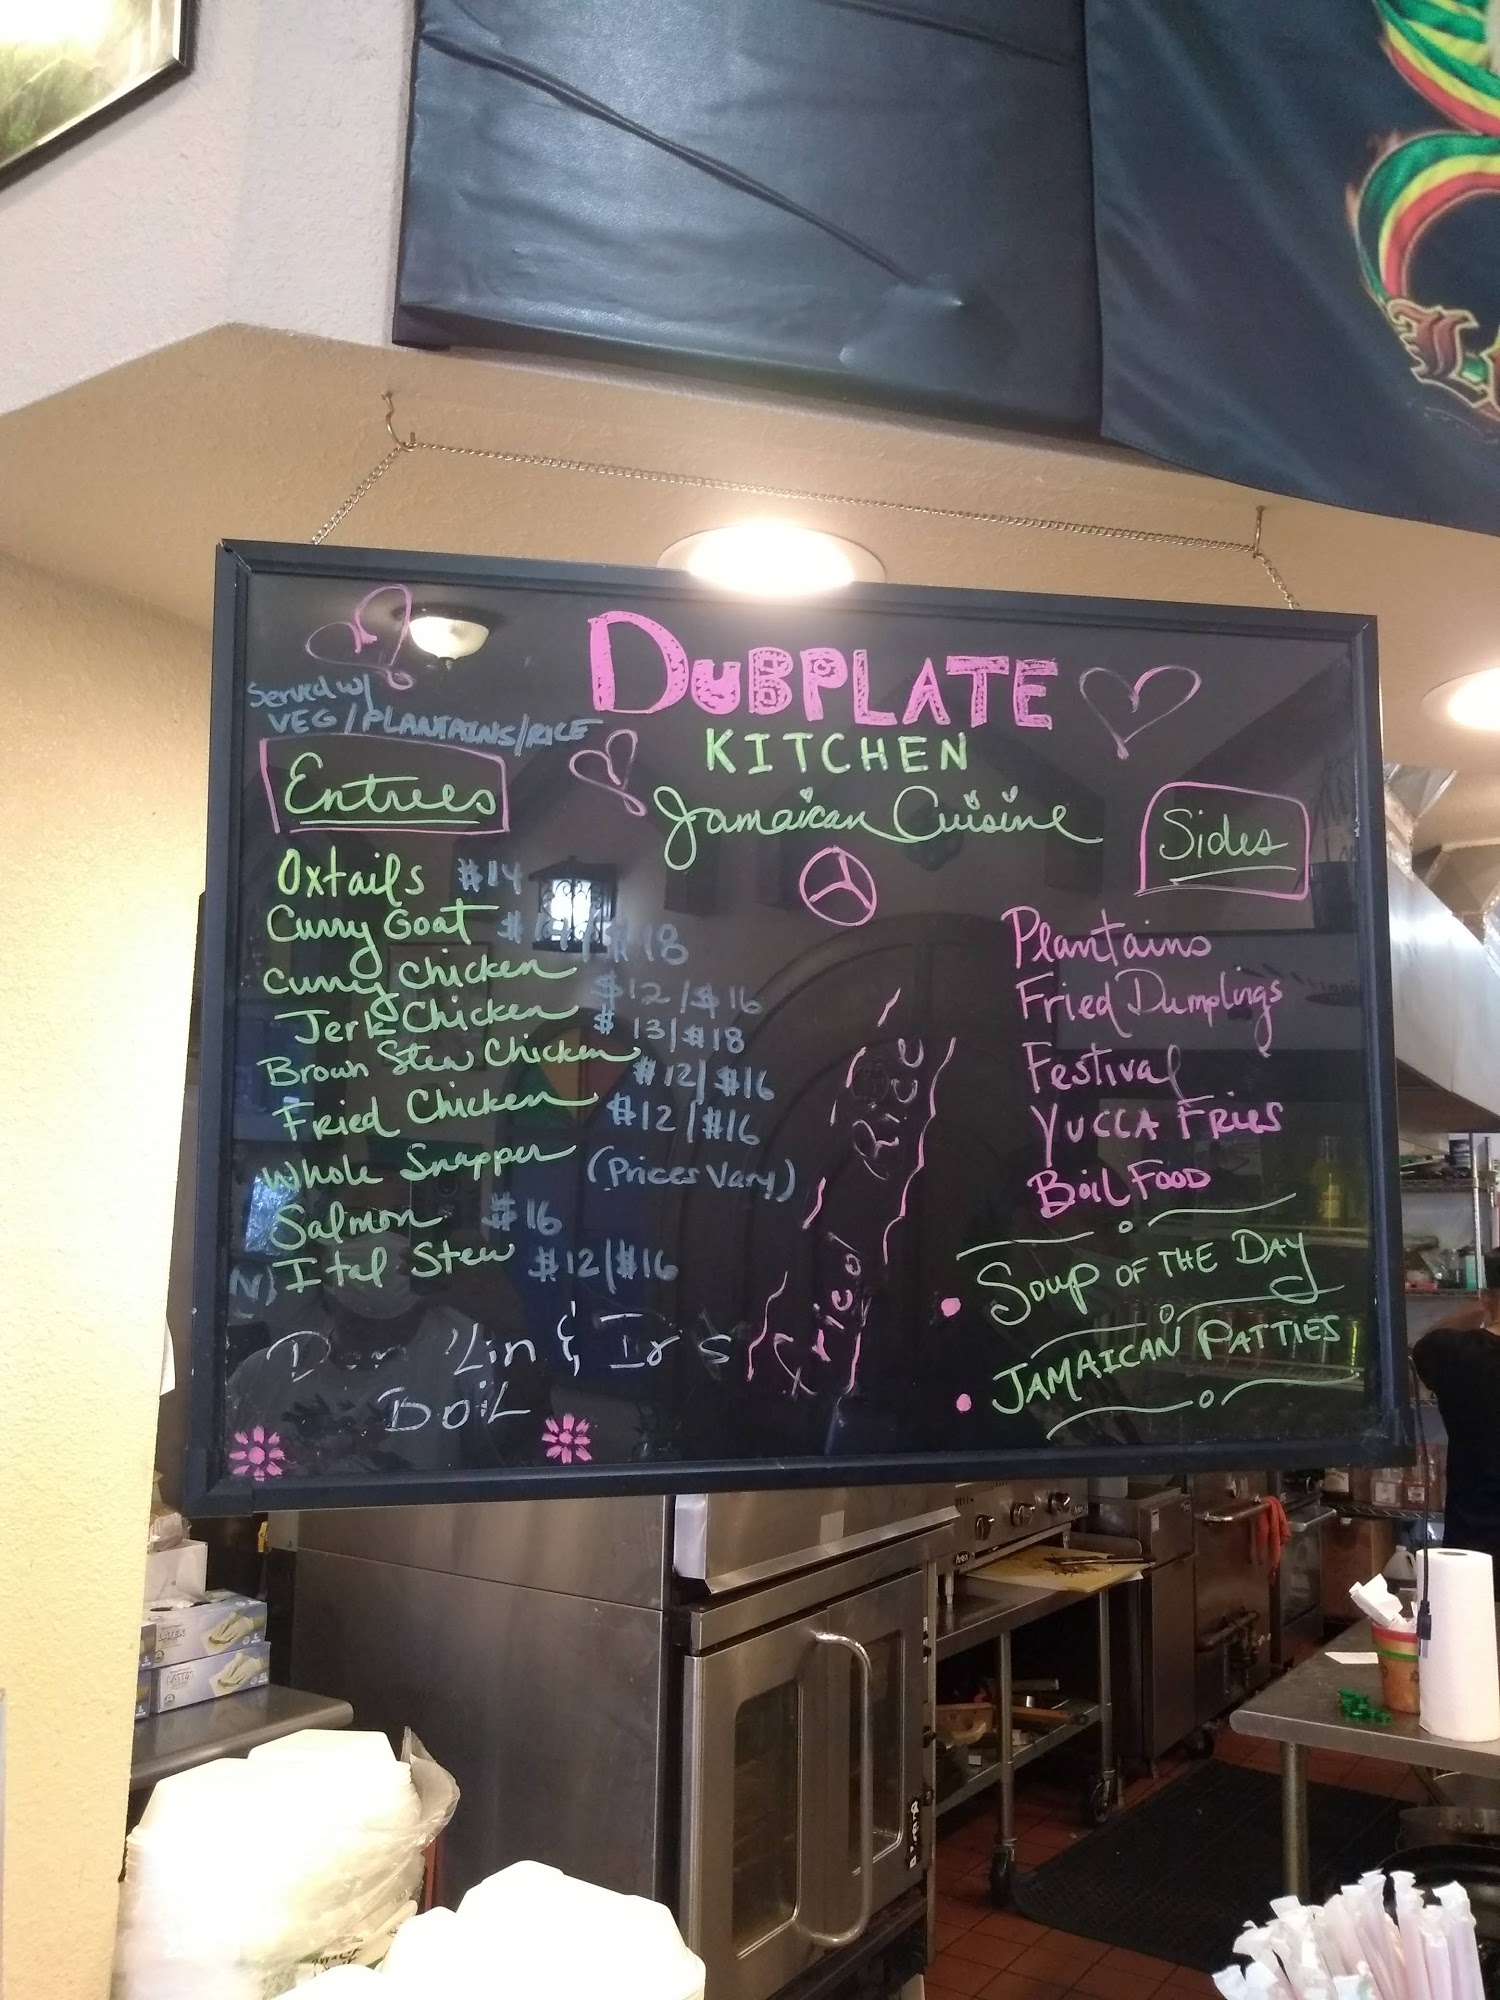 DUBPLATE
KITCHEN
Jamaican Cuisine
Served w/
VEG/PLANTAINS/RICE
Entrees
Oxtails $14
Curry Goat $14/$18
Curry Chicken $12/$16
Jerk Chicken $13/$18
Brown Stew Chicken $12/$16
Fried Chicken $12/$16
Whole Snapper (Prices Vary)
Salmon $16
Ital Stew $12/$16
BOIL
Rice
Sides
Plantains
Fried Dumplings
Festival
YUCCA FRIES
BOIL FOOD
SOUP OF THE DAY
JAMAICAN PATTIES
LATEX
LATEX